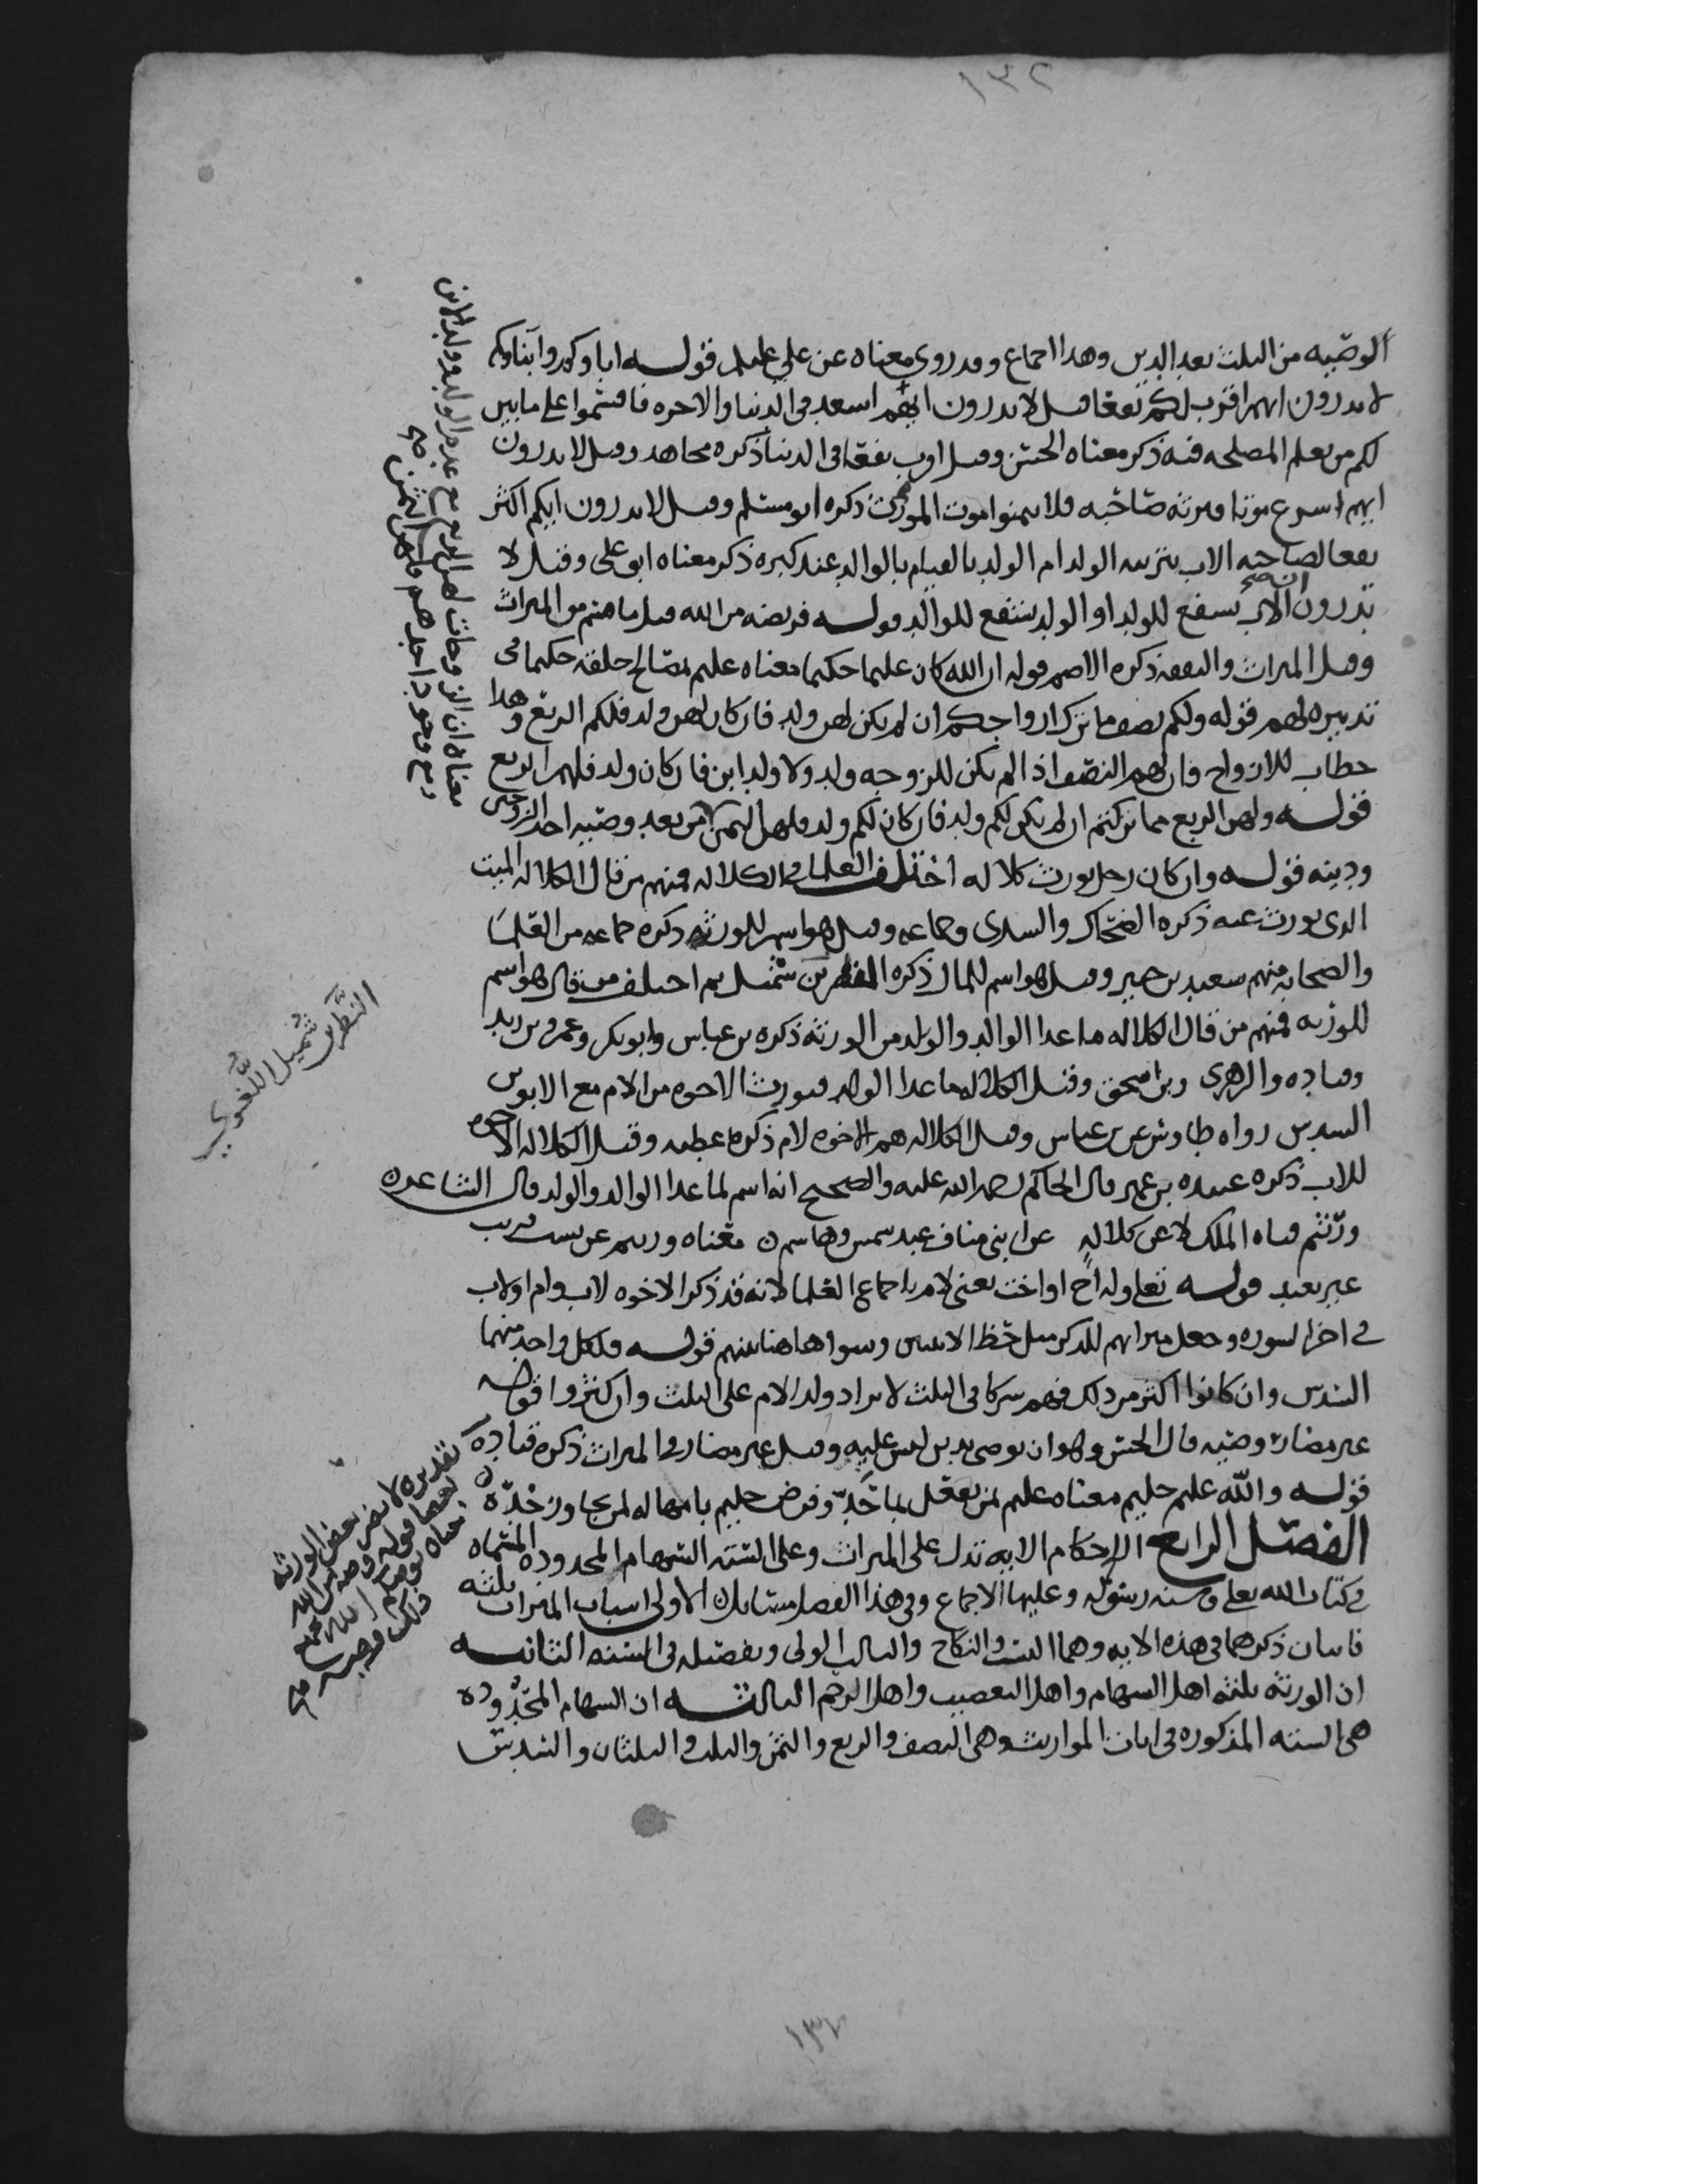 ١٣٢
الوصيه من الثلث بعد الدين وهذا اجماع وقد روي معناه عن علي عليلم قوله اباوكم وابناوكم
لا تدرون ايهم اقرب لكم نفعا قيل لا تدرون ايهم اسعد في الدنيا والاخره فاقسموا على ما بين
لكم من يعلم المصلحه فيه ذكر معناه الحسن وقيل اقرب نفعا في الدنيا ذكره مجاهد وقيل لا تدرون
ايهم اسرع موتا فيرثه صاحبه فلا تتمنوا موت المورث ذكره ابو مسلم وقيل لا تدرون ايكم اكثر
نفعا لصاحبه الاب بتربيه الولد ام الولد بالقيام بالوالد عند كبره ذكر معناه ابو علي وقيل لا
تدرون الاب ينتفع للولد او الولد ينتفع للوالد قوله فريضه من الله قيل ما قسم من الميراث
وقيل الميراث والنفقه ذكره الاصم قوله ان الله كان عليما حكيما معناه عليم بمصالح خلقه حكيما في
تدبيره لهم قوله ولكم نصف ما ترك ازواجكم ان لم يكن لهن ولد فان كان لهن ولد فلكم الربع وهذا
خطاب للازواج فان لهم النصف اذا لم يكن للزوجه ولد ولا ولد ابن فان كان ولد فلهم الربع
قوله ولهن الربع مما تركتم ان لم يكن لكم ولد فان كان لكم ولد فلهن الثمن من بعد وصيه احد الزوجين
ودينه قوله وان كان رجل يورث كلاله اختلف العلما في الكلاله فمنهم من قال الكلاله الميت
الذي يورث عنه ذكره الضحاك والسدي وجماعه وقيل هو اسم للورثه ذكره جماعه من العلما
والصحابه منهم سعيد بن جبير وقيل هو اسم للمال ذكره النضر بن شميل ثم اختلف من قال هو اسم
للورثه فمنهم من قال الكلاله ما عدا الوالد والولد من الورثه ذكره بن عباس وابو بكر وعمر وبن زيد
وقتاده والزهري وبن اسحق وقيل الكلاله ما عدا الولد فيورث الاخوه من الام مع الابوين
السدس رواه طاوس عن بن عباس وقيل الكلاله هم الاخوه لام ذكره عطيه وقيل الكلاله الاخوه
للاب ذكره عبيده بن عمير قال الحاكم رحمه الله عليه والصحيح انه اسم لما عدا الوالد والولد قال الشاعر ه
ورثتم قناه الملك لا عن كلاله عن ابني مناف عبد شمس وهاشم ن معناه ورثتم عن نسب قريب
غير بعيد قوله تعلى وله اخ او اخت يعني لام باجماع العلما لانه قد ذكر الاخوه لاب وام او لاب
في اخر السوره وجعل ميراثهم للذكر مثل حظ الانثيين وسوا هاهنا بينهم قوله فلكل واحد منهما
السدس وان كانوا اكثر من ذلك فهم شركا في الثلث لا يزاد ولد الام على الثلث وان كثروا قوله
غير مضار وصيه قال الحسن وهو ان يوصي بدين ليس عليه وقيل غير مضار في الميراث ذكره قتاده
قوله والله عليم حليم معناه عليم لمن يفعل بما حد وفرض حليم بامهاله لمن تجاوز حده ن
الفصل الرابع الاحكام الايه تدل على الميراث وعلى السته السهام المحدوده المسماه
في كتاب الله تعلى وسنه رسوله وعليها الاجماع وفي هذا الفصل مسايل الاولى اسباب الميراث ثلثه
فاثنان ذكرهما في هذه الايه وهما النسب والنكاح والثالث الولي وتفصيله في السنه الثانيه
ان الورثه ثلثه اهل السهام واهل التعصيب واهل الرحم الثالثه ان السهام المحدوده
هي السته المذكوره في ايات المواريث وهي النصف والربع والثمن والثلث والثلثان والسدس
معناه ان الزوجات لهن الربع مع عدم الولد وولد الابن
النضر بن شميل اللغوي
تقديره لا يضر بعض الورثه
بعضا قوله وصيه من الله
١٣٢